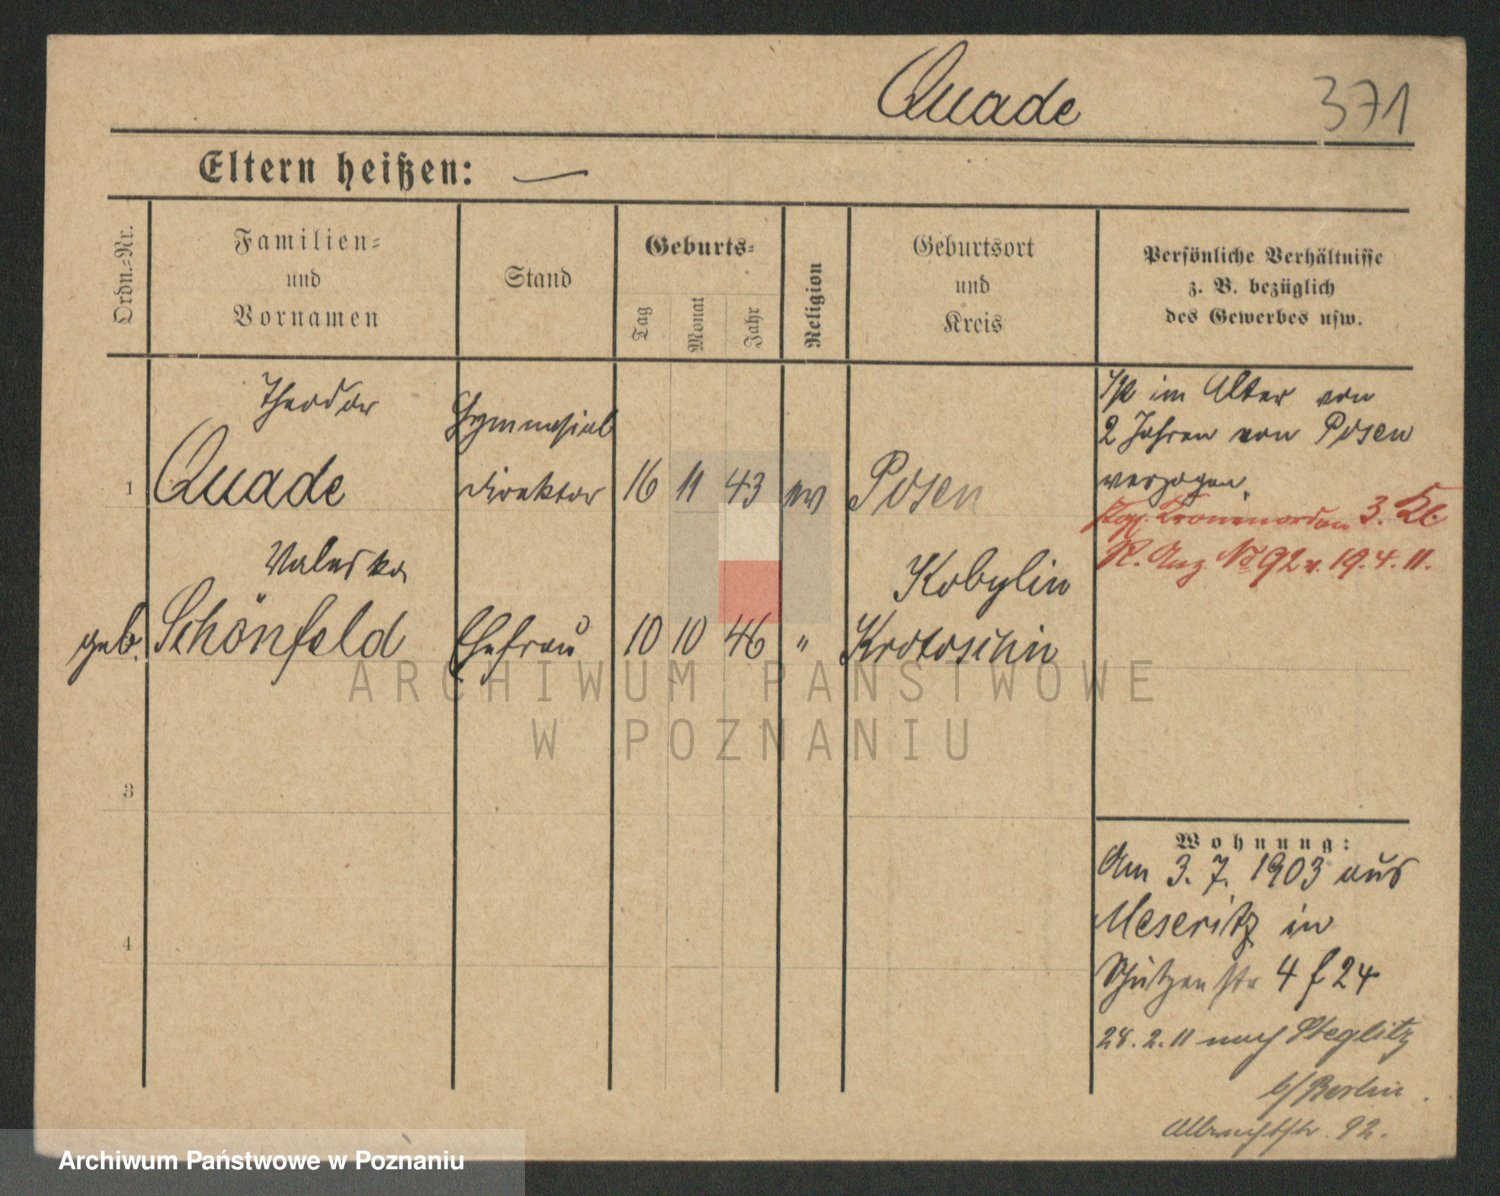 Quade
371
Eltern heißen: —
Ordn.-Nr.
Familien-
und
Vornamen
Stand
Geburts-
Tag
Monat
Jahr
Religion
Geburtsort
und
Kreis
Persönliche Verhältnisse
z. B. bezüglich
des Gewerbes usw.
Theodor
1 Quade
Gymnasial
direktor
16 11 43 ev Posen
Ist im Alter von
2 Jahren von Posen
verzogen.
Kgl. Kronenorden 3. Kl.
R. Anz. No 92 v. 19.4.11.
Valeska
geb. Schönfeld
Ehefrau
10 10 46 "
Kobylin
Krotoschin
3
4
Wohnung:
Am 3. 7. 1903 aus
Meseritz in
Schützenstr 4 f 24
28.2.11 nach Steglitz
b/Berlin.
Albrechtstr. 92.
ARCHIWUM PAŃSTWOWE
W POZNANIU
Archiwum Państwowe w Poznaniu